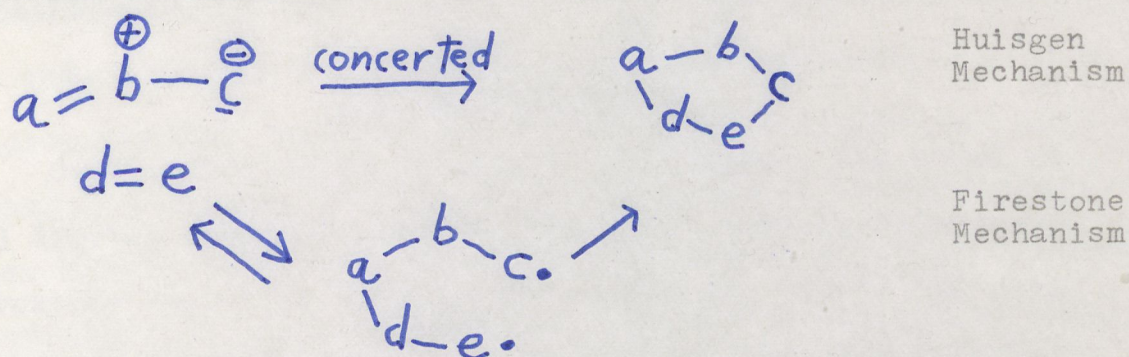 ⊕ ⊖
a=b—c concerted a—b c
d e
Huisgen
Mechanism
d=e
Firestone
Mechanism
a b c•
d—e•